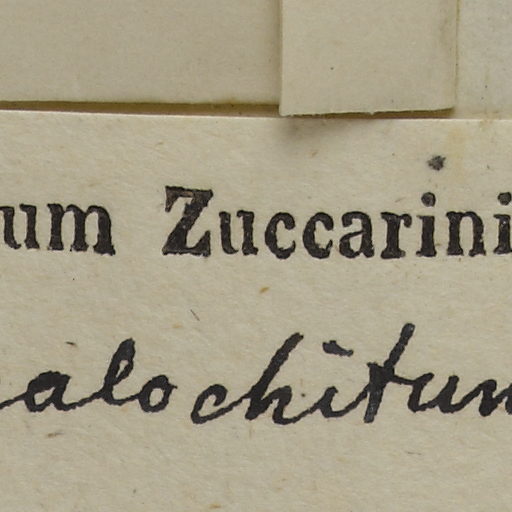 um Zuccarini
alochitum